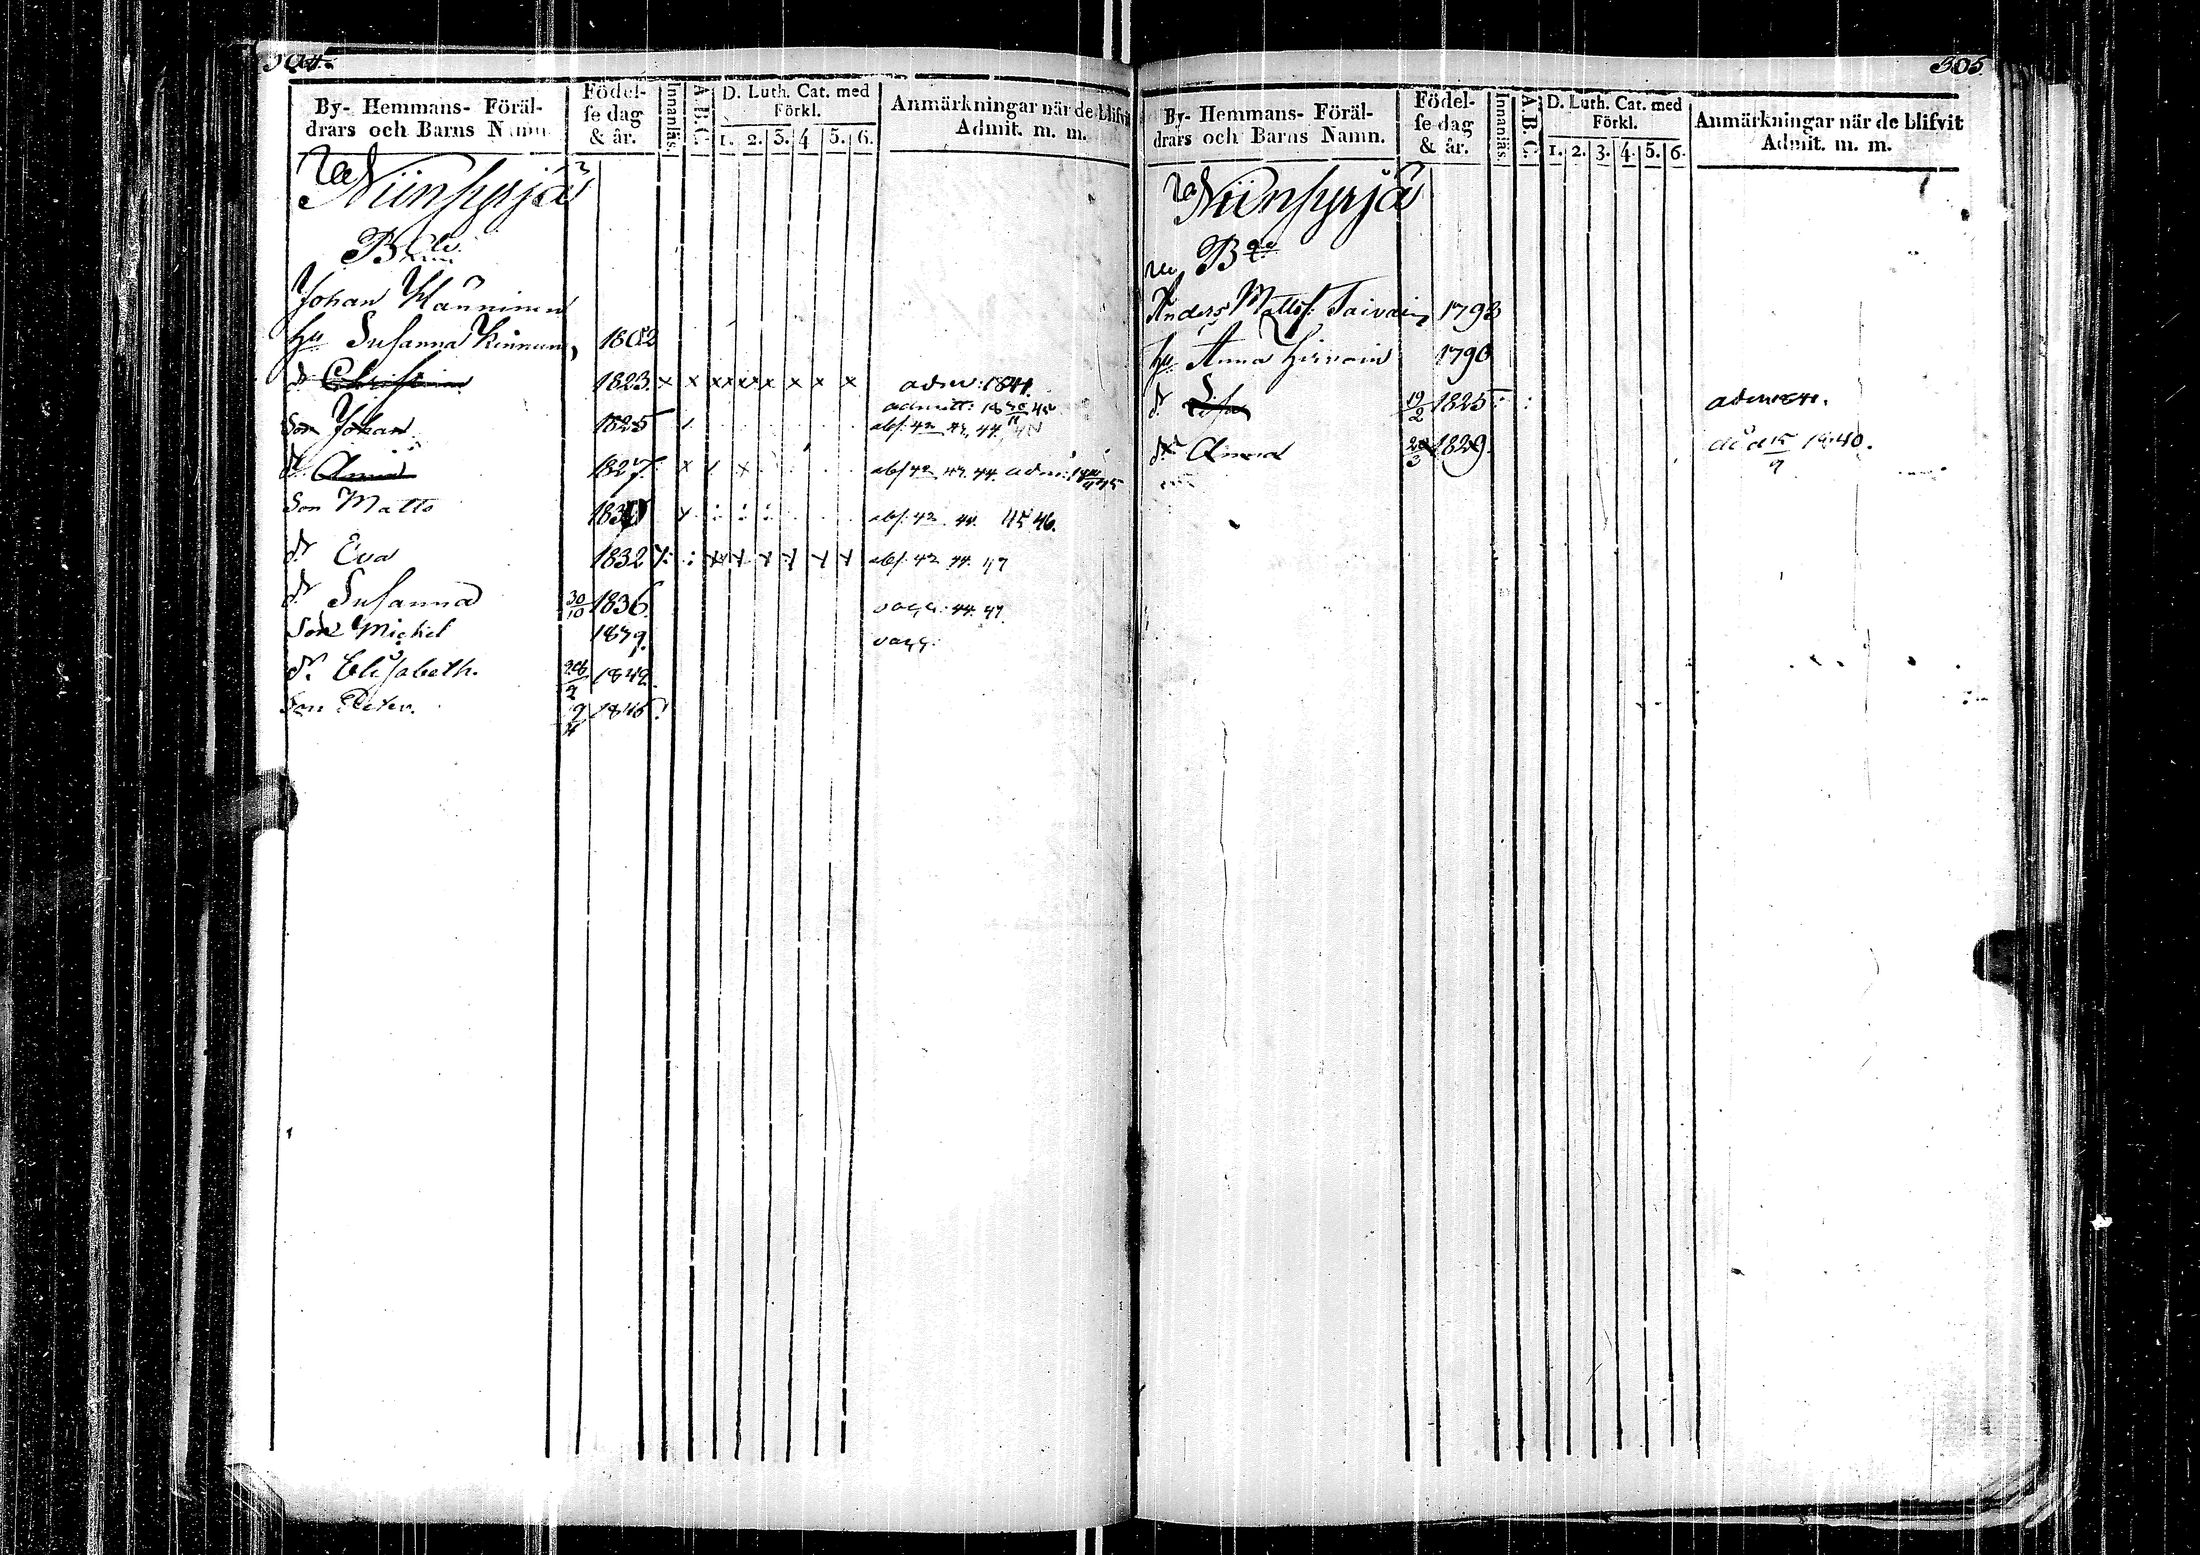 304.
By- Hemmans- Föräl-
drars och Barns Namn.
Födel-
se dag
& år.
Innanläs.
A.B.C.
D. Luth. Cat. med
Förkl.
1. 2. 3. 4 5. 6.
Anmärkningar när de blifvit
Admit. m. m.
Niinsyrjä
Johan Hänninen
hu Susanna Kinnunen 1802
dr Christina 1823. x x x x x x x x x adm: 1841.
admitt:
Son Johan 1825 abs: 42 43, 44.
dr Anna 1827. x x abs 42 43. 44. adm:
Son Matts abs: 42 44. 45 46.
dr Eva 1832 abs: 42 44. 47
dr Susanna 30/10 1836 vacc: 44. 47.
Son Michel 1839. vacc:
dr Elisabeth. 26/2 1842.
Son Peter.
305.
By- Hemmans- Föräl-
drars och Barns Namn.
Födel-
se dag
& år.
Innanläs.
A.B.C.
D. Luth. Cat. med
Förkl.
1. 2. 3. 4. 5. 6.
Anmärkningar när de blifvit
Admit. m. m.
Niinsyrjä
Anders Matts: Taivain 1793
hu Anna Hirvoin 1790
dr Lisa 19/2 1825 adm 1841.
dr Anna 1829. död 15/9 1840.